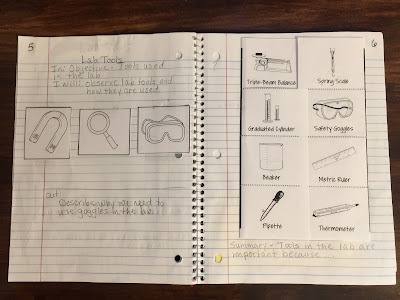 5
Lab Tools
In: Objective - Tools used
in the lab
I will: observe lab tools and
how they are used.
out:
Describe why we need to
use goggles in the lab.
6
Triple-Beam Balance
Spring Scale
Graduated Cylinder
Safety Goggles
Beaker
Metric Ruler
Pipette
Thermometer
Summary - Tools in the lab are
important because ...